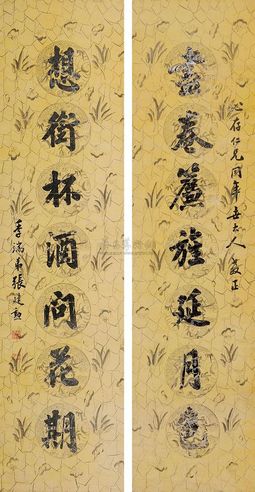 卷簾旌延月色
存仁兄同年大人教正
想銜杯酒問花期
季端弟張建勳